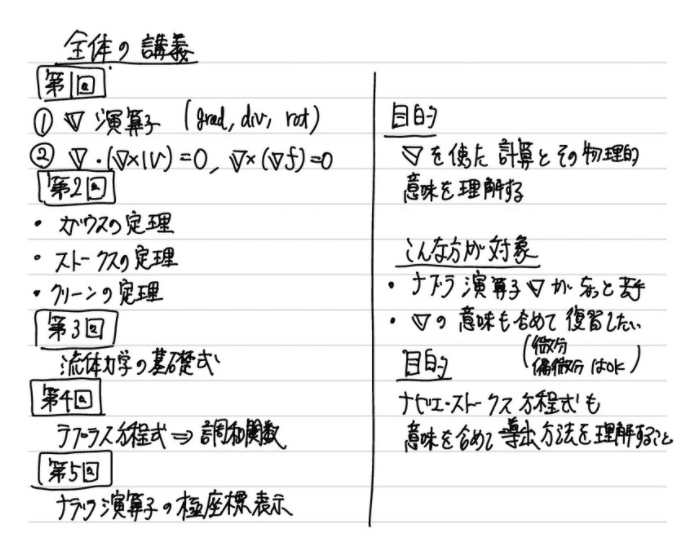 全体の講義
第1回
① ∇ 演算子 (grad, div, rot)
② ∇・(∇×V)=0, ∇×(∇f)=0
第2回
・ガウスの定理
・ストークスの定理
・グリーンの定理
第3回
流体力学の基礎式
第4回
ラプラス方程式⇒調和関数
第5回
ナブラ演算子の極座標表示
目的
∇を使た計算とその物理的
意味を理解する
こんな方が対象
・ナブラ演算子∇が
・∇の意味も含めて復習したい
(微分
偏微分はOK)
目的
ナビエ・ストークス方程式も
意味を含めて導出方法を理解すること